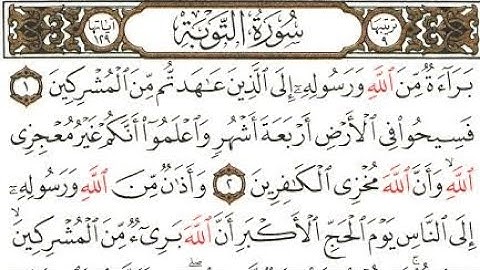 ترتيبها ٩ سُورَةُ التَّوْبَةِ آياتها ١٢٩
بَرَآءَةٌ مِّنَ ٱللَّهِ وَرَسُولِهِۦٓ إِلَى ٱلَّذِينَ عَٰهَدتُّم مِّنَ ٱلْمُشْرِكِينَ ١
فَسِيحُوا۟ فِى ٱلْأَرْضِ أَرْبَعَةَ أَشْهُرٍ وَٱعْلَمُوٓا۟ أَنَّكُمْ غَيْرُ مُعْجِزِى
ٱللَّهِ ۙ وَأَنَّ ٱللَّهَ مُخْزِى ٱلْكَٰفِرِينَ ٢ وَأَذَٰنٌ مِّنَ ٱللَّهِ وَرَسُولِهِۦٓ
إِلَى ٱلنَّاسِ يَوْمَ ٱلْحَجِّ ٱلْأَكْبَرِ أَنَّ ٱللَّهَ بَرِىٓءٌ مِّنَ ٱلْمُشْرِكِينَ ۙ